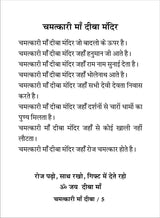 चमत्कारी माँ दीबा मंदिर
चमत्कारी माँ दीबा मंदिर जो बादलो के ऊपर है।
चमत्कारी माँ दीबा मंदिर जहाँ हनुमान जी आते है।
चमत्कारी माँ दीबा मंदिर जहाँ राम नाम सुनाई देता है।
चमत्कारी माँ दीबा मंदिर जहाँ भोलेनाथ आते है।
चमत्कारी माँ दीबा मंदिर जहाँ सभी देवो देवता निवास
करते है।
चमत्कारी माँ दीबा मंदिर जहाँ दर्शनों से चारों धामों का
पुण्य मिलता है।
चमत्कारी माँ दीबा मंदिर जहाँ से कोई खाली नहीं
लौटता।
चमत्कारी माँ दीबा मंदिर जहाँ रोज चमत्कार होते है।
रोज पढ़ो, साथ रखो, गिफ्ट में देते रहो
ॐ जय दीबा माँ
चमत्कारी माँ दीबा / 5